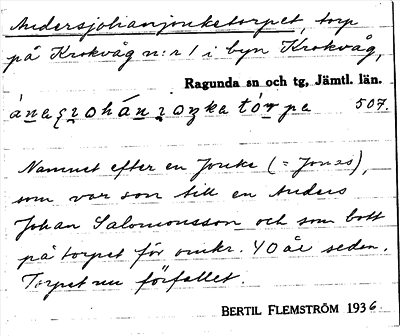 Andersjohanjonketorpet, torp
på Krokvåg n:r 1 i byn Krokvåg,
Ragunda sn och tg, Jämtl. län.
507.
Namnet efter en Jonke (= Jonas),
som var son till en Anders
Johan Salomonsson och som bott
på torpet för omkr. 40 år sedan.
Torpet nu förfallet.
BERTIL FLEMSTRÖM 1936.